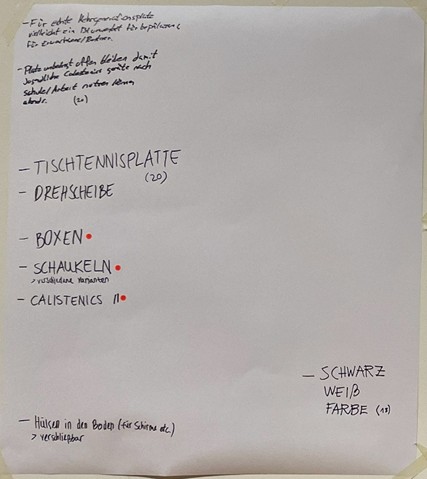 - Für echte
vielleicht ein
für Erwachsene/Rentner.
- Platz unbedingt offen bleiben damit
Jugendliche Calastenics geräte nach
Schule/Arbeit nutzen können
abends. (20)
- TISCHTENNISPLATTE
(20)
- DREHSCHEIBE
- BOXEN
- SCHAUKELN
> verschiedene Varianten
- CALISTENICS II
- SCHWARZ
WEIß
FARBE (18)
- Hülsen in den Boden (für Schirme etc.)
> verschließbar